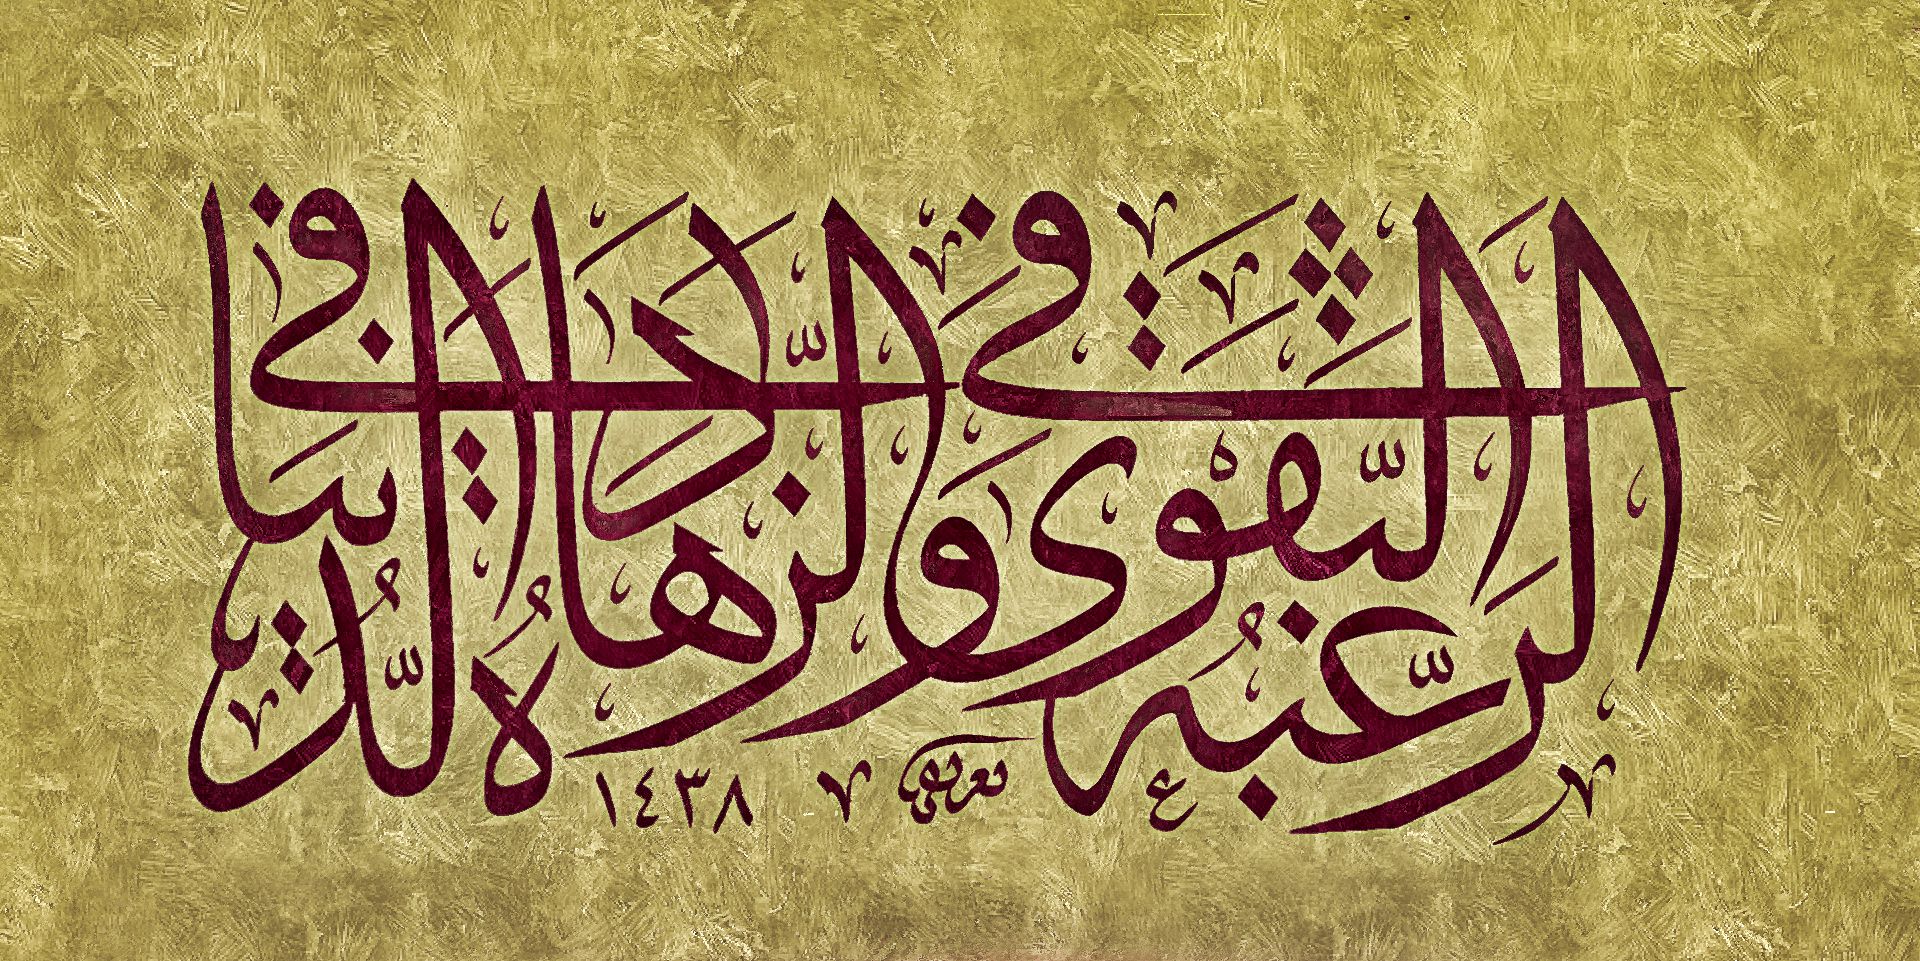 الرَّغبةُ في التَّقوى والزَّهادةُ في الدُّنيا
١٤٣٨